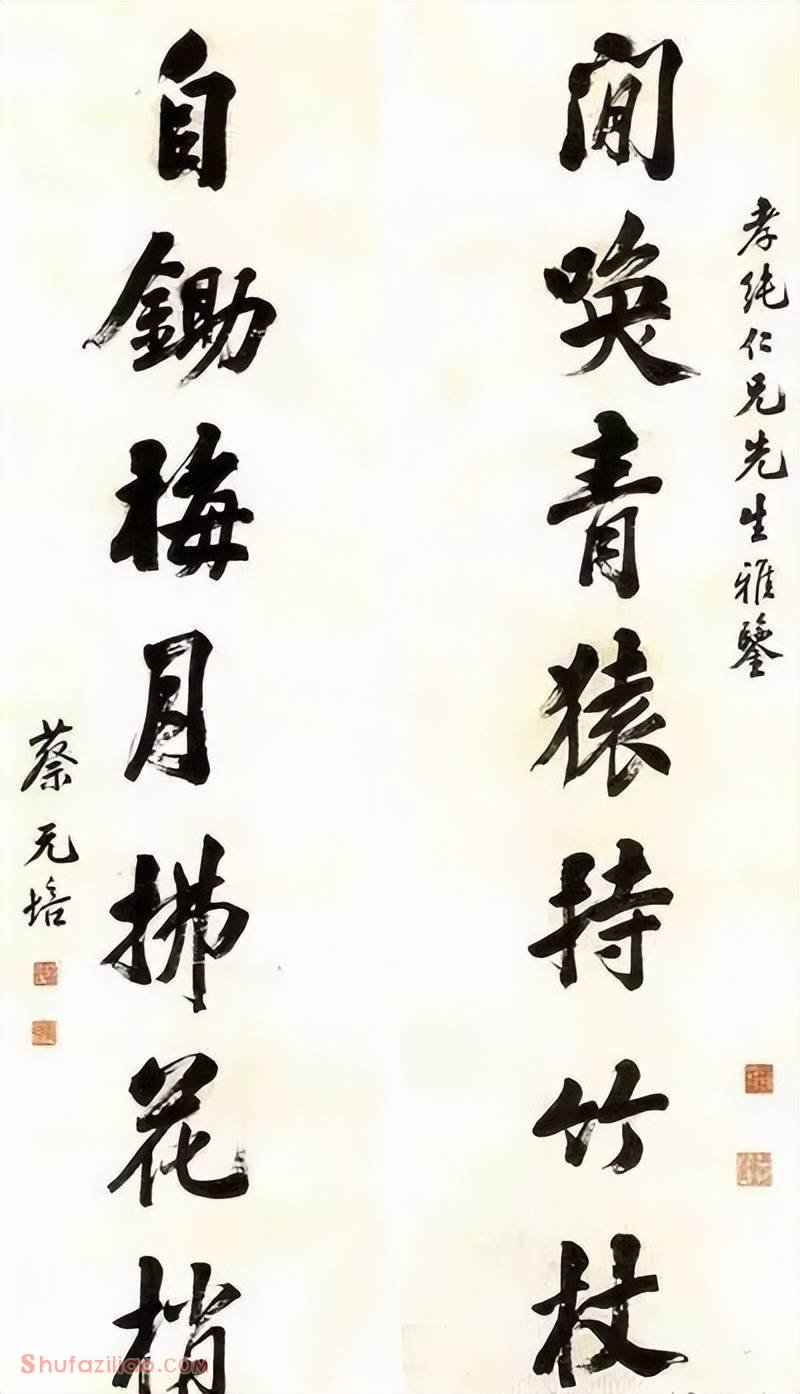 孝純仁兄先生雅鑒
閒喚青猿持竹杖
自鋤梅月拂花梢
蔡元培
Shufaziliao.com